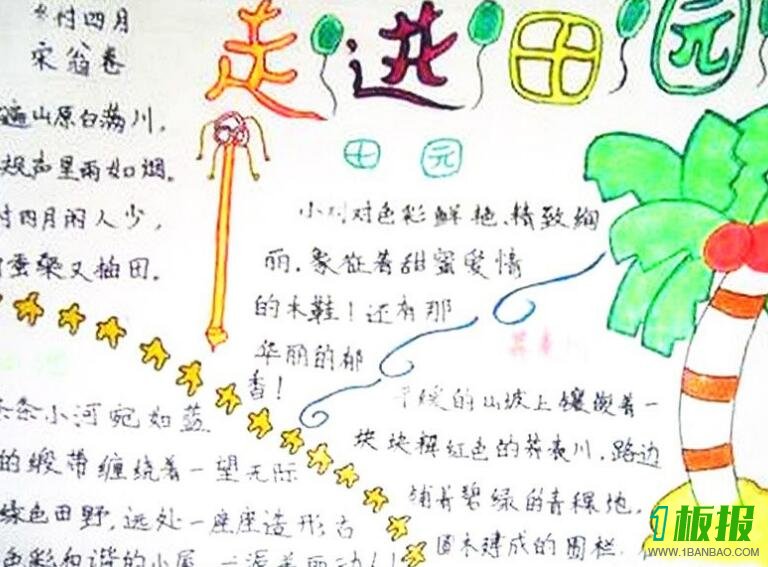 走进田园
乡村四月
宋翁卷
遍山原白满川，
规声里雨如烟。
村四月闲人少，
蚕桑又插田。
田园
小对对色彩鲜艳、精致绚
丽，象征着甜蜜爱情
的木鞋！还有那
华丽的郁
香！
条条小河宛如蓝
的缎带缠绕着一望无际
绿色田野，远处一座座造形古
色彩和谐的小屋，一派
平缓的山坡上镶嵌着一
块块粉红色的荞麦川，路边
铺着碧绿的青稞地，
圆木建成的围栏，
1板报
WWW.1BANBAO.COM